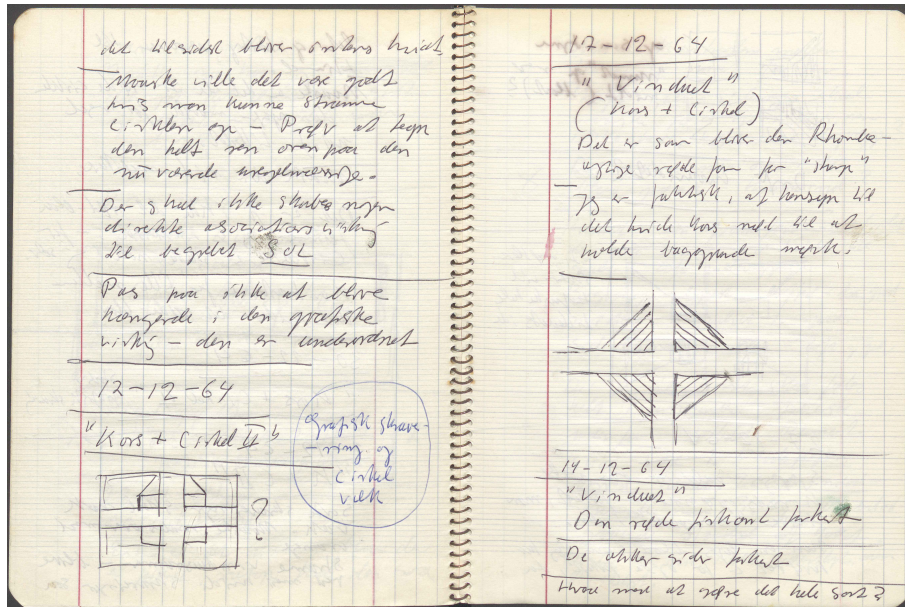 det tilsidst bliver
Maaske ville det være godt
hvis man kunne stramme
Cirklen op – Prøv at tegn
den helt ren oven paa den
nuværende uregelmæssige.
Der skal ikke skabes nogen
direkte associations virkning
til begrebet SOL
Pas paa ikke at blive
hængende i den grafiske
virkning – den er underordnet
12-12-64
"Kors + Cirkel II"
?
Grafisk skrave-
-ring og
Cirkel
væk
17-12-64
"Vinduet"
(Kors + Cirkel)
Det er som bliver den Rhombe-
agtige røde form for "skarp"
Jeg er faktisk, af hensyn til
det hvide Kors nød til at
holde baggrunden mørk.
14-12-64
"Vinduet"
Den røde firkant forkert
De sider forkert
Hvad med at gøre det hele sort?